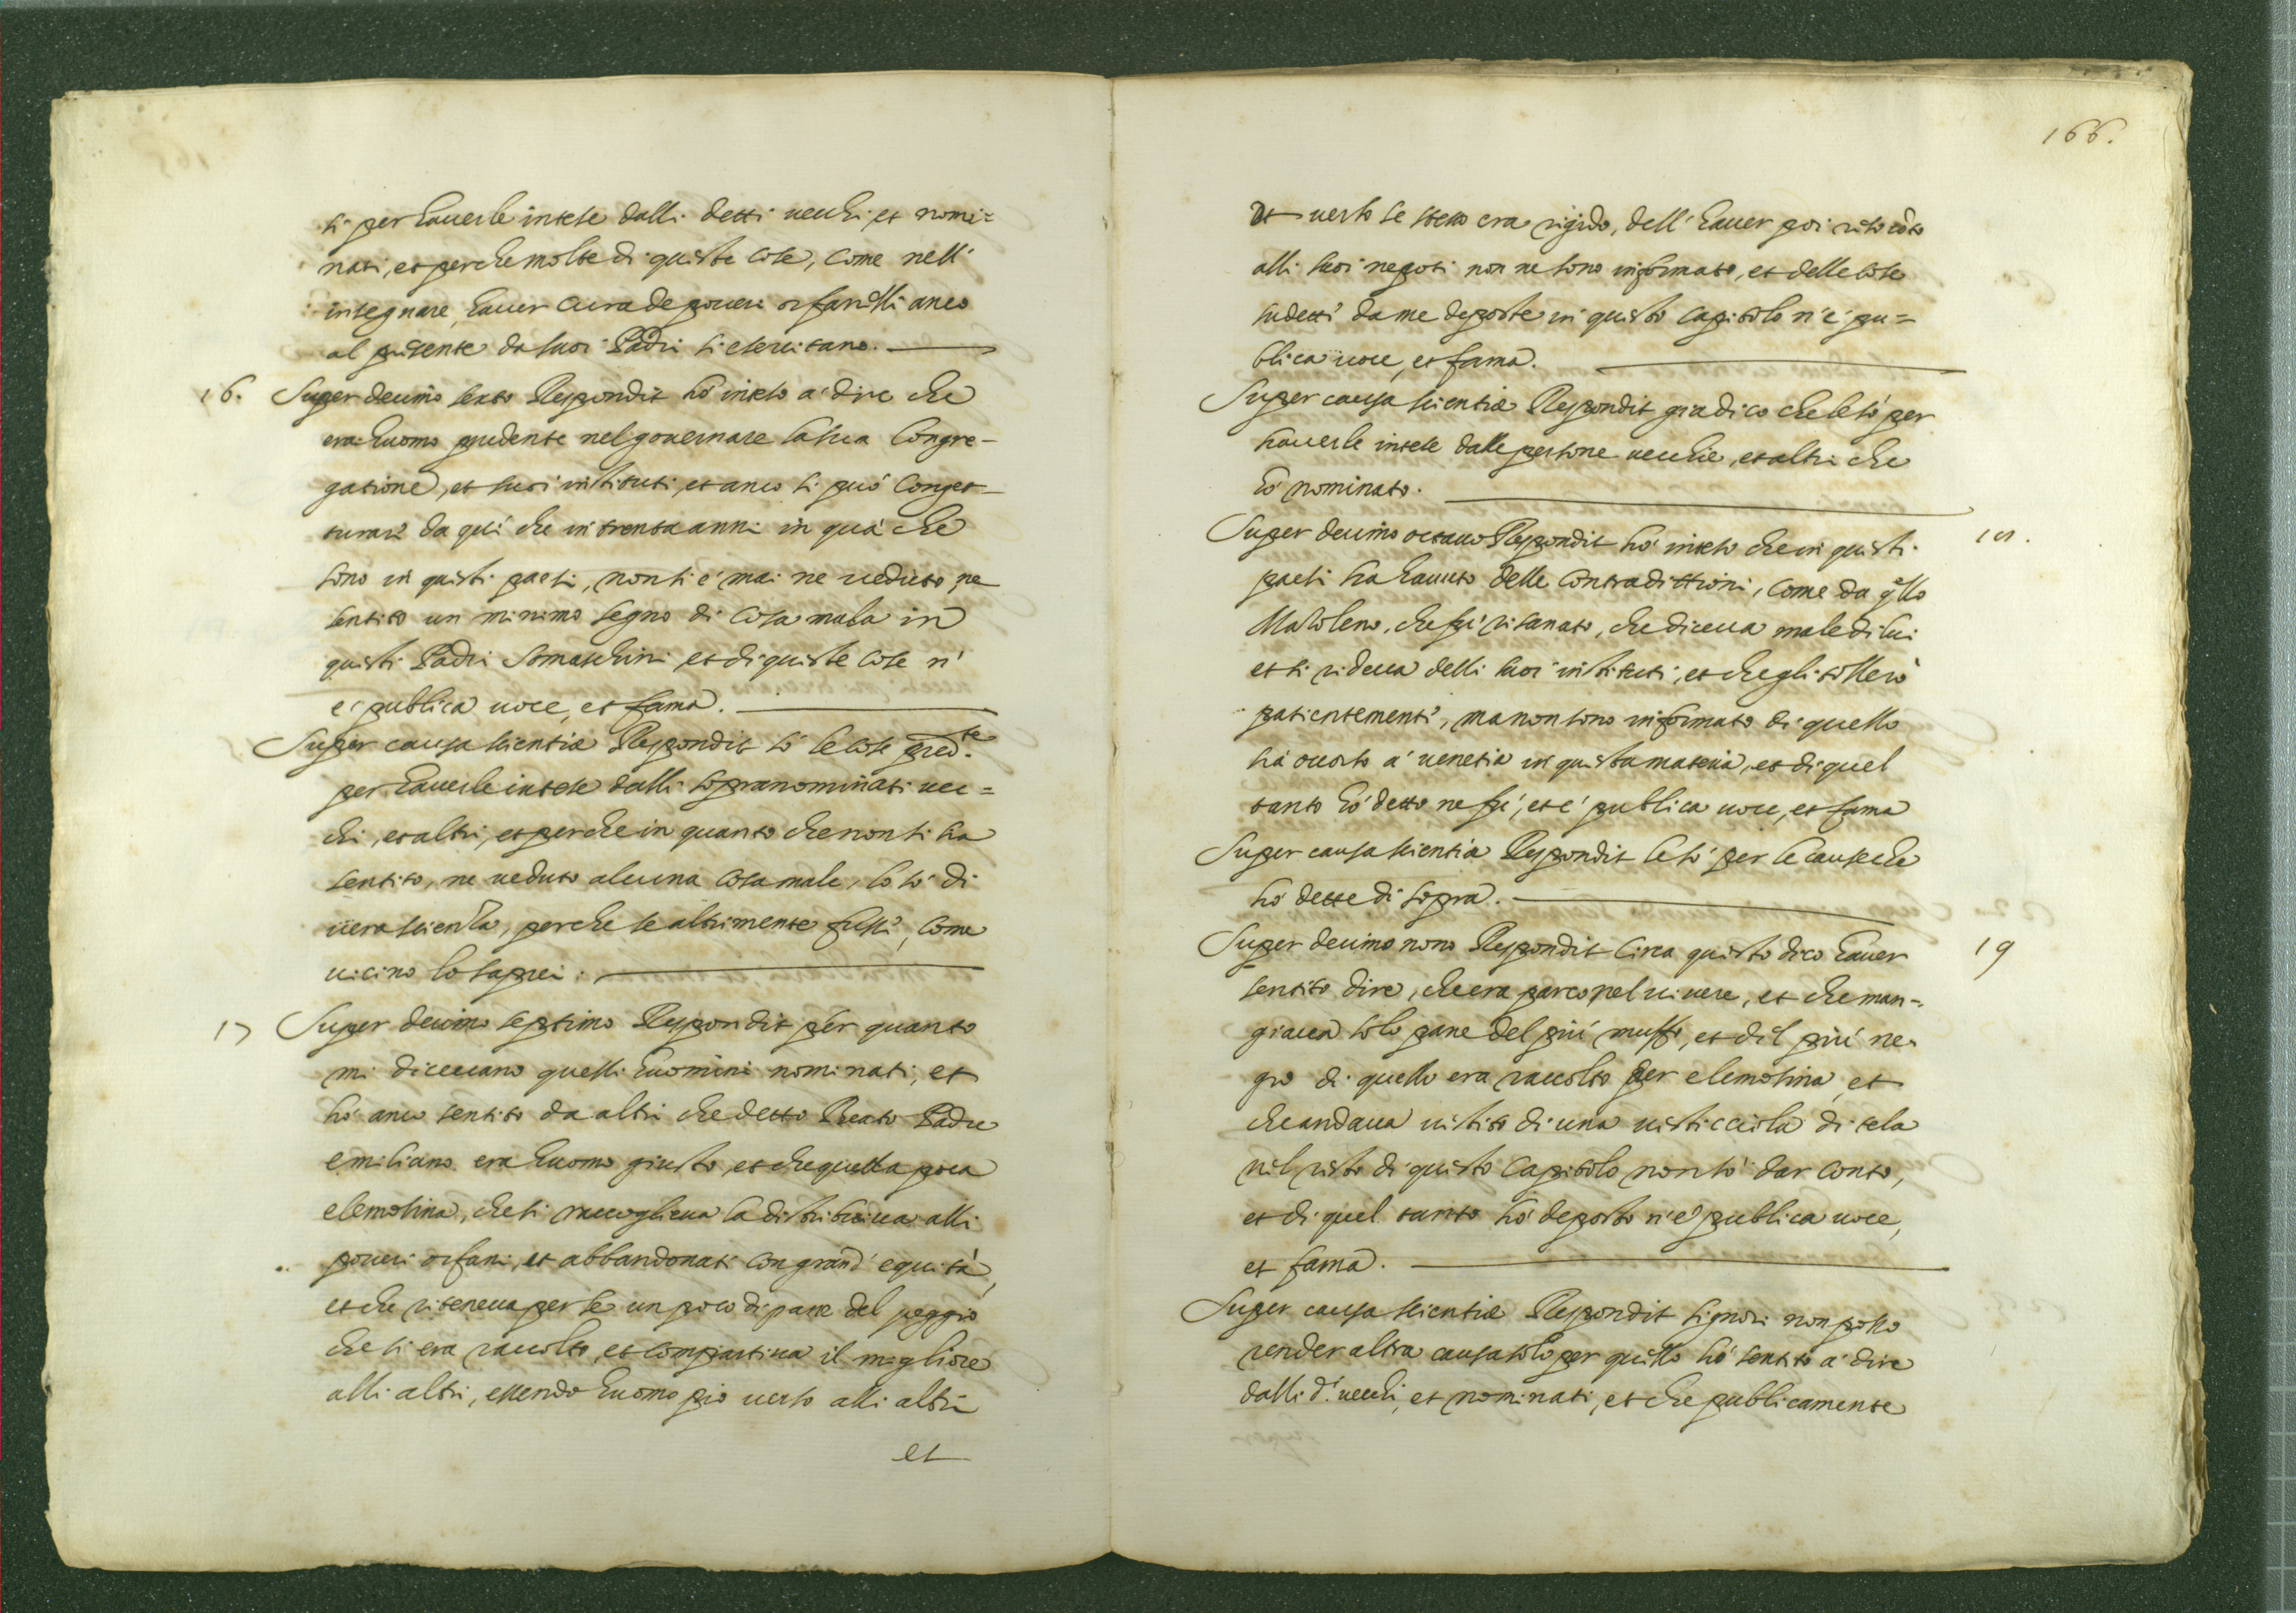 ti per hauerle intese dalli detti uecchi et nomi=
nati, et perche molte di queste cose, come nell'
insegnare, hauer cura de poueri orfanelli anco
al presente da suoi Padri si esercitano.
16. Super decimo sexto Respondit hò inteso a' dire che
era huomo prudente nel gouernare la sua Congre-
gatione, et suoi instituti, et anco si può Conget-
turare da qui che in trenta anni in quà che
sono in questi paesi, non si è mai ne ueduto, ne
sentito un minimo segno di cosa mala in
questi Padri Somaschini et di queste cose n'
è publica uoce, et fama.
Super causa scientiæ Respondit sò le cose pred.te
per hauerle intese dalli sopranominati uec=
chi, et altri, et perche in quanto che non si ha
sentito, ne ueduto alcuna cosa male, lo sò di
uera scientia, perche se altrimente fusse, come
uicino lo saprei.
17 Super decimo septimo Respondit per quanto
mi diceuano quelli huomini nominati, et
hò anco sentito da altri che detto Beato Padre
emiliano era huomo giusto, et che quella poca
elemosina, che si raccoglieua la distribuiua alli
poueri orfani, et abbandonati con grand' equità,
et che riteneua per se un poco di pane del peggio
che si era raccolto, et compartiua il migliore
alli altri, essendo huomo pio uerso alli altri
et
166.
et uerso se stesso era rigido, dell' hauer poi
alli suoi negoti non ne sono informato, et delle cose
sudette da me deposte in questo capitolo n'è pu=
blica uoce, et fama.
Super causa scientiæ Respondit gia dico che le sò per
hauerle intese dalle persone uecchie, et altri che
hò nominato.
Super decimo octauo Respondit hò inteso che in questi 18.
paesi ha hauuto delle contradittioni, come da qllo
Masoleno, che fù risanato, che diceua male di lui
et si rideua delli suoi instituti, et che egli tollerò
patientemente, ma non sono informato di quello
hà occorso a' uenetia in questa materia, et di quel
tanto hò detto ne fù, et è publica uoce, et fama
Super causa scientia Respondit le sò per le cause che
hò dette di sopra.
Super decimo nono Respondit Circa questo dico hauer 19
sentito dire, che era parco nel uiuere, et che man-
giaua solo pane del più muffo, et del più ne-
gro di quello era raccolto per elemosina, et
che andaua uestito di una uesticciola di tela
nel resto di questo Capitolo non sò dar conto,
et di quel tanto hò deposto n'è publica uoce,
et fama.
Super causa scientiæ Respondit signori non posso
render altra causa solo per quello hò sentito a' dire
dalli d.i uecchi, et nominati, et che publicamente